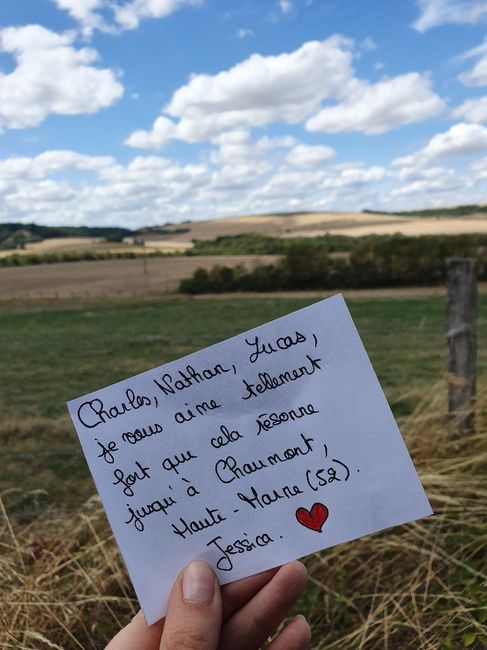 Charles, Nathan, Lucas,
je vous aime tellement
fort que cela résonne
jusqu'à Chaumont,
Haute-Marne (52).
Jessica.